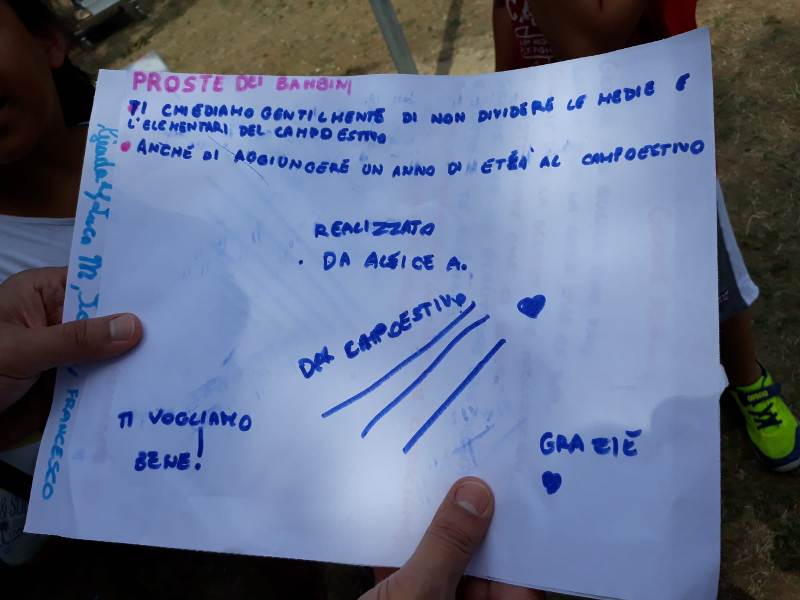 PROSTE DEI BAMBINI
TI CHIEDIAMO GENTILMENTE DI NON DIVIDERE LE MEDIE E
L'ELEMENTARI DEL CAMPOESTIVO
ANCHE DI AGGIUNGERE UN ANNO DI ETÉA' AL CAMPOESTIVO
REALIZZATO
DA ALSICE A.
DAL CAPOESTIVO
TI VOGLIAMO
BENE!
GRAZIÈ
FRANCESCO